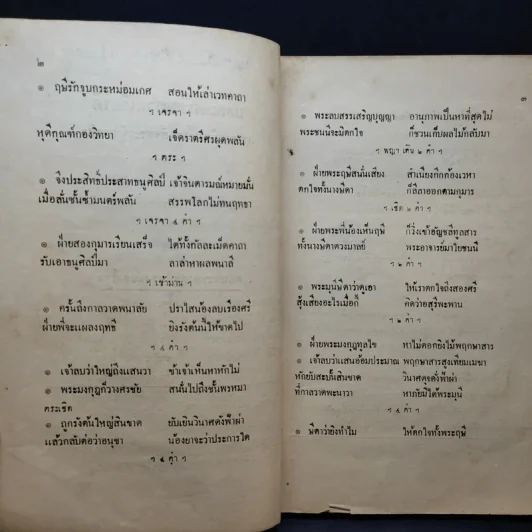 ๒
๏ ฤษีรักจูบกระหม่อมเกศ สอนให้เล่าเวทคาถา
ฯ เจรจา ฯ
หุติกุณฑ์กองวิทยา เจ็ดราตรีศรผุดพลัน
ฯ ตระ ฯ
๏ จึ่งประสิทธิ์ประสาทธนูศิลป์ เจ้าจินดารมณ์หมายมั่น
เมื่อลั่นซั้นซ้ำมนตร์พลัน สรรพโลกไม่ทนฤทธา
ฯ เจรจา ๔ คำ ฯ
๏ ฝ่ายสองกุมารเรียนเสร็จ ได้ทั้งกัลละเม็ดคาถา
รับเอาธนูศิลป์มา ลาล่าหาผลพนาลี
ฯ เข้าม่าน ฯ
๏ ครั้นถึงกาลวาดพนาลัย ปราไสน้องลบเรืองศรี
ฝ่ายพี่จะแผลงฤทธี ยิงรังต้นนี้ให้ขาดไป
ฯ ๔ คำ ฯ
๏ เจ้าลบว่าใหญ่ถึงแสนวา ข้าเจ้าเห็นหาหักไม่
๏ พระมงกุฎก็วางศรชัย สนั่นไปถึงชั้นพรหมา
ตระเชิด
๏ ถูกรังต้นใหญ่สินขาด ยับเยินวินาศดังฟ้าผ่า
แล้วกลับต่อว่าอนุชา น้องยาจะว่าประการใด
ฯ ๔ คำ ฯ
๓
๏ พระลบสรรเสริญบุญญา อานุภาพเป็นหาที่สุดไม่
พระชนนีจะมิตกใจ ก็ชวนเก็บผลไม้กลับมา
ฯ พญาเดิน ๒ คำ ฯ
๏ ฝ่ายพระฤษีสนั่นเสียง สำเนียงกึกก้องเวหา
ตกใจทั้งนางษีดา ก็ลีลาออกตามกุมาร
ฯ เชิด ๒ คำ ฯ
๏ ฝ่ายพระพี่น้องเห็นฤษี ก็วิ่งเข้าอัญชลีทูลสาร
ทั้งนางษีดาดวงมาลย์ พระอาจารย์มาไยชนนี
ฯ ๒ คำ ฯ
๏ พระมุนีษีดาว่าดูเอา ให้เราตกใจถึงสองศรี
สุ้งเสียงอะไรเมื่อกี้ คิดว่าอสุรีพะพาน
ฯ ๒ คำ ฯ
๏ ฝ่ายพระมงกุฎทูลไข หาไม่ดอกยิงไม้พฤกษาสาร
๏ เจ้าลบว่าแสนอ้อมประมาณ พฤกษาสารสูงเทียมเมฆา
หักยับสะบั้นสินขาด วินาศดุจดั่งฟ้าผ่า
ที่กาลวาดพะนาวา หาภัยมิได้พระมุนี
ฯ ๔ คำ ฯ
๏ ษีดาว่ายิงทำไม ให้ตกใจทั้งพระฤษี